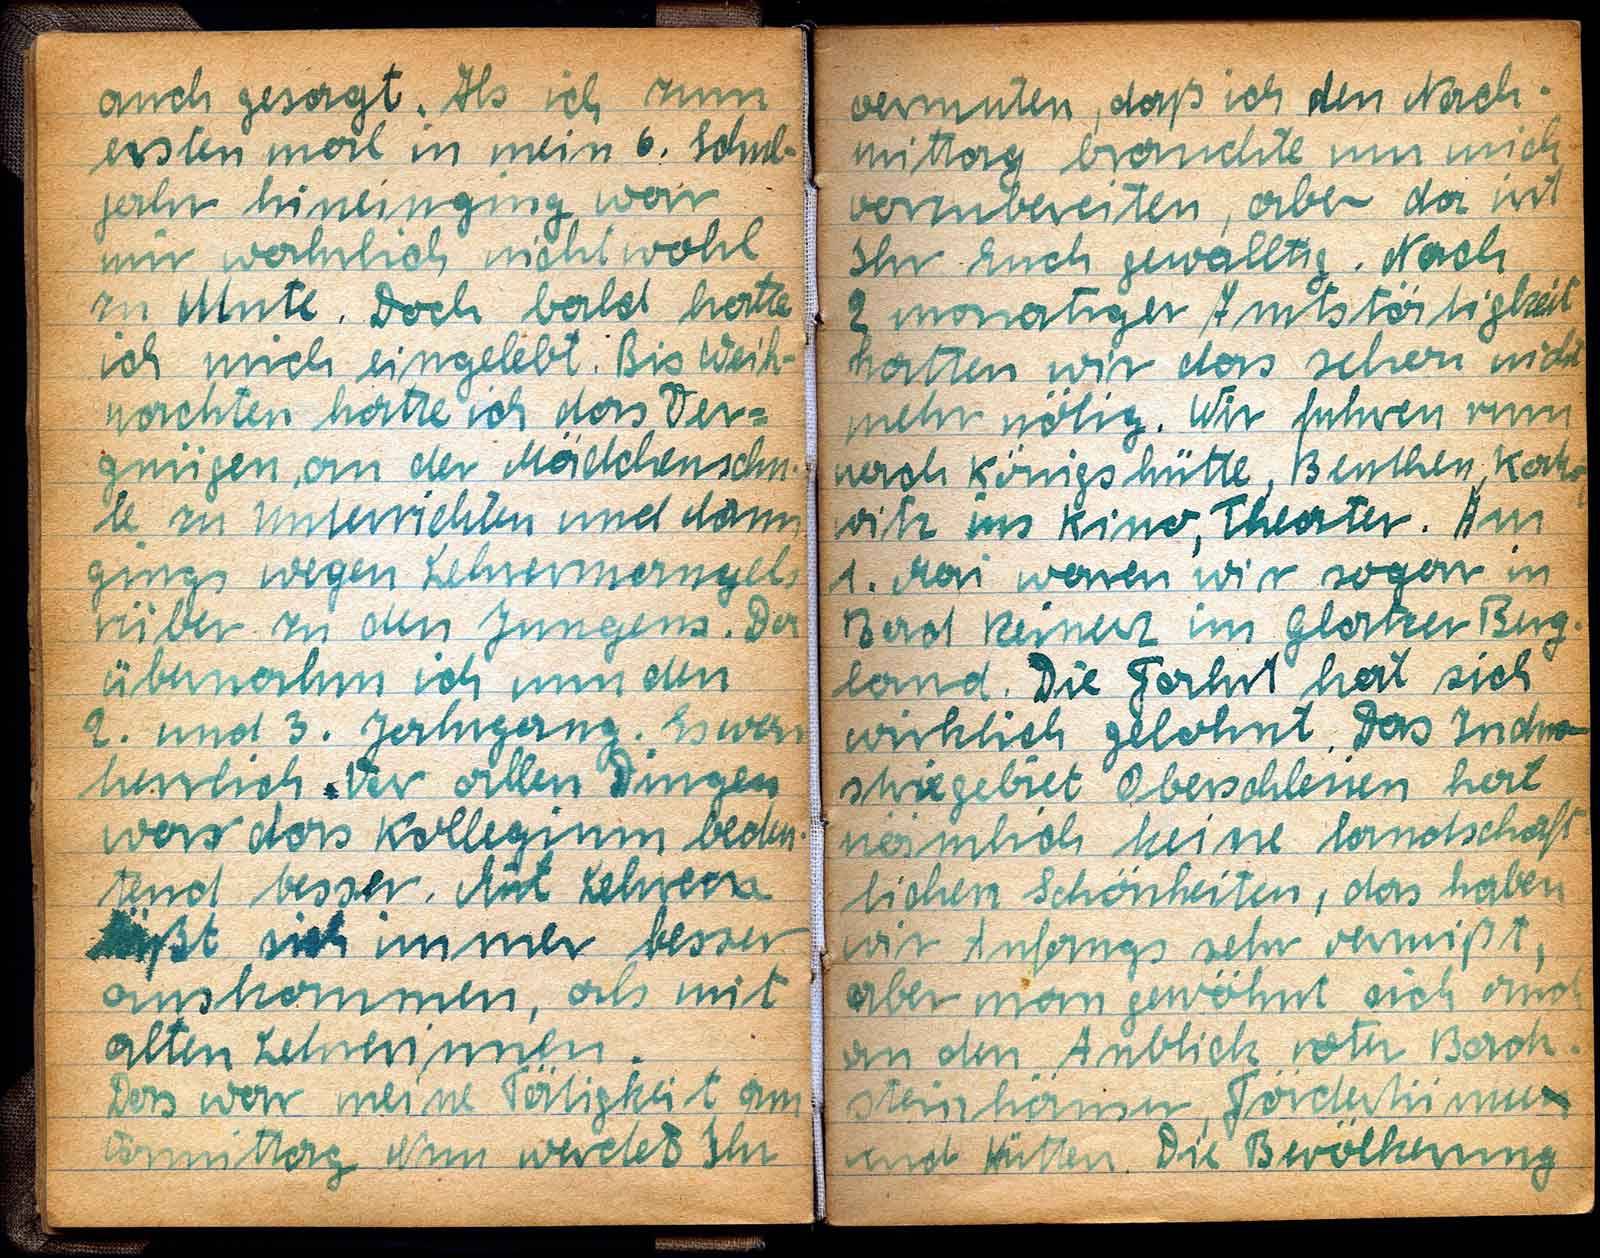 auch gesagt. Als ich zum
ersten mal in mein 6. Schul-
jahr hineinging, war
mir wahrlich nicht wohl
zu Mute. Doch bald hatte
ich mich eingelebt. Bis Weih-
nachten hatte ich das Ver=
gnügen, an der Mädchenschu-
le zu unterrichten und dann
gings wegen Lehrermangels
rüber zu den Jungens. Da
übernahm ich nun den
2. und 3. Jahrgang. Es war
herrlich. Vor allen Dingen
war das Kollegium bedeu-
tend besser. Mit Lehrern
läßt sich immer besser
auskommen, als mit
alten Lehrerinnen.
Das war meine Tätigkeit am
Vormittag. Nun werdet Ihr
vermuten, daß ich den Nach-
mittag brauchte um mich
vorzubereiten, aber da irrt
Ihr Euch gewalltig. Nach
2 monatiger Amtstätigkeit
hatten wir das schon nicht
mehr nötig. Wir fuhren nun
nach Königshütte, Beuthen, Katto-
witz ins Kino, Theater. Am
1. Mai waren wir sogar in
Bad Reinerz im Glatzer Berg-
land. Die Fahrt hat sich
wirklich gelohnt. Das Indu-
striegebiet Oberschlesien hat
nämlich keine landschaft-
lichen Schönheiten, das haben
wir Anfangs sehr vermißt,
aber man gewöhnt sich auch
an den Anblick roter Back-
steinhäuser, Fördertürme
und Hütten. Die Bevölkerung